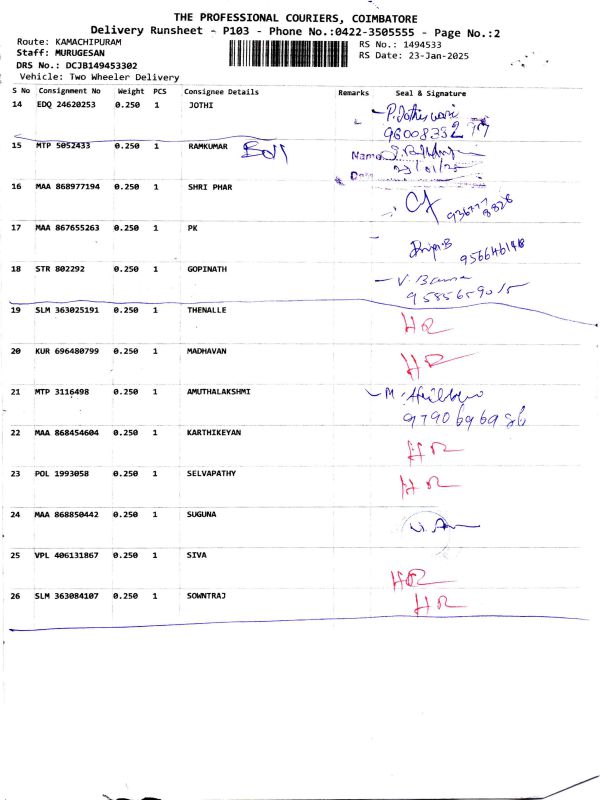 THE PROFESSIONAL COURIERS, COIMBATORE
Delivery Runsheet - P103 - Phone No.:0422-3505555 - Page No.:2
Route: KAMACHIPURAM RS No.: 1494533
Staff: MURUGESAN RS Date: 23-Jan-2025
DRS No.: DCJB149453302
Vehicle: Two Wheeler Delivery
S No Consignment No Weight PCS Consignee Details Remarks Seal & Signature
14 EDQ 24620253 0.250 1 JOTHI
15 MTP 5052433 0.250 1 RAMKUMAR
Name
Date 23/01/25
16 MAA 868977194 0.250 1 SHRI PHAR
17 MAA 867655263 0.250 1 PK
18 STR 802292 0.250 1 GOPINATH
19 SLM 363025191 0.250 1 THENALLE
20 KUR 696480799 0.250 1 MADHAVAN
21 MTP 3116498 0.250 1 AMUTHALAKSHMI
22 MAA 868454604 0.250 1 KARTHIKEYAN
23 POL 1993058 0.250 1 SELVAPATHY
24 MAA 868850442 0.250 1 SUGUNA
25 VPL 406131867 0.250 1 SIVA
26 SLM 363084107 0.250 1 SOWNTRAJ